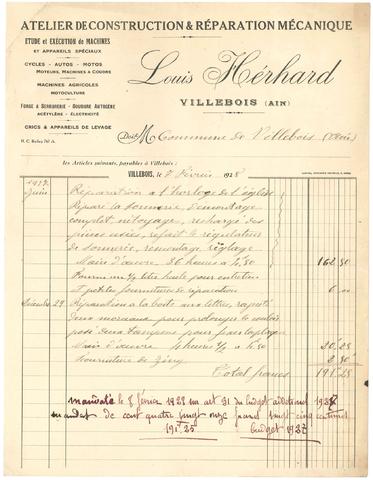 ATELIER DE CONSTRUCTION & RÉPARATION MÉCANIQUE
ETUDE et EXÉCUTION de MACHINES
ET APPAREILS SPÉCIAUX
CYCLES - AUTOS - MOTOS
MOTEURS, MACHINES A COUDRE
MACHINES AGRICOLES
MOTOCULTURE
FORGE & SERRURERIE - SOUDURE AUTOGÈNE
ACÉTYLÈNE - ÉLECTRICITÉ
CRICS & APPAREILS DE LEVAGE
Louis Hérhard
VILLEBOIS (AIN)
Doit M Commune de Villebois (Ain)
les Articles suivants, payables à Villebois :
VILLEBOIS, le Février 1928
1927
Juin Réparation a l'horloge de l'église
Réparé la sonnerie, démontage
complet nitoyage, rechargé des
pièces usées, refait le régulateur
de sonnerie, remontage réglage
Main d'œuvre 36 heures a 4,50 162 50
Fourni un 1/2 litre huile pour entretien
et petites fourniture de réparation 6 00
29 Réparation a la boite aux lettres, rapporté
deux morceaux pour prolonger le
posé deux tampons pour
Main d'œuvre 4 heures 1/2 a 4.50 20 25
Fourniture de 2 50
Total francs 191 25
mandaté le 8 février 1928 sur art 31 du budget additionnel
mandat de cent quatre vingt onze francs vingt cinq centimes
191f25 budget 1927